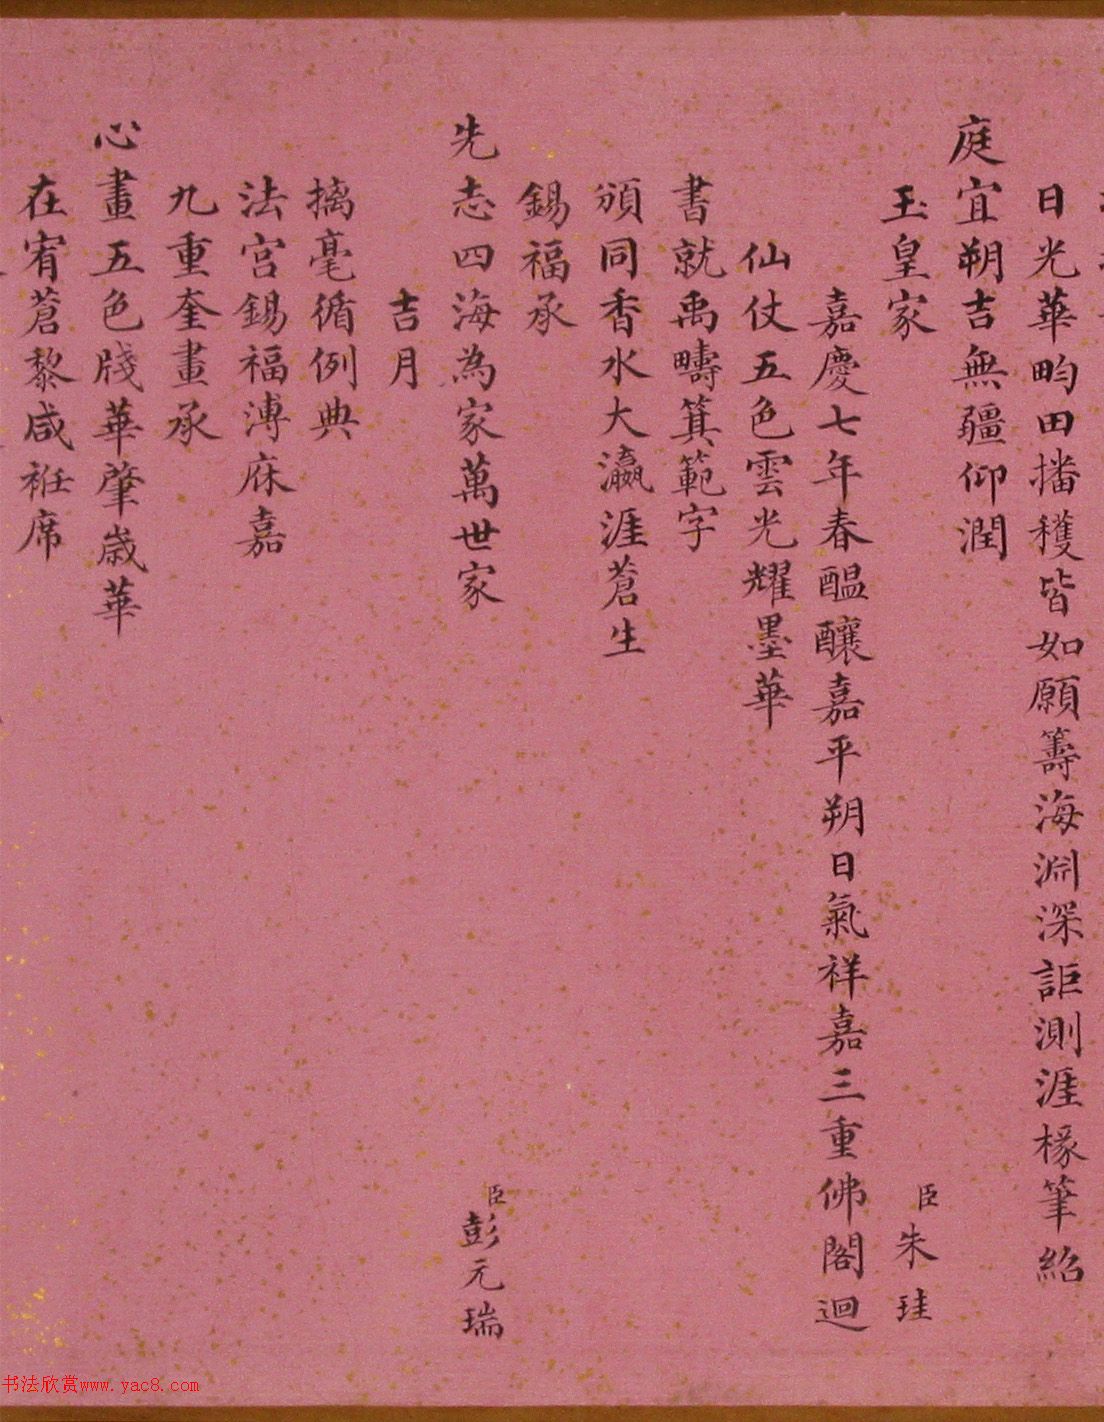 日光華畇田播穫皆如願籌海淵深詎測涯椽筆紹
庭宜朔吉無疆仰潤
玉皇家
臣朱珪
嘉慶七年春醞釀嘉平朔日氣祥嘉三重佛閣迴
仙仗五色雲光耀墨華
書就禹疇箕範字
頒同香水大瀛涯蒼生
錫福承
先志四海為家萬世家
臣彭元瑞
吉月
摛毫循例典
法宮錫福溥庥嘉
九重奎畫承
心畫五色牋華肇歲華
在宥蒼黎咸袵席
书法欣赏www.yac8.com